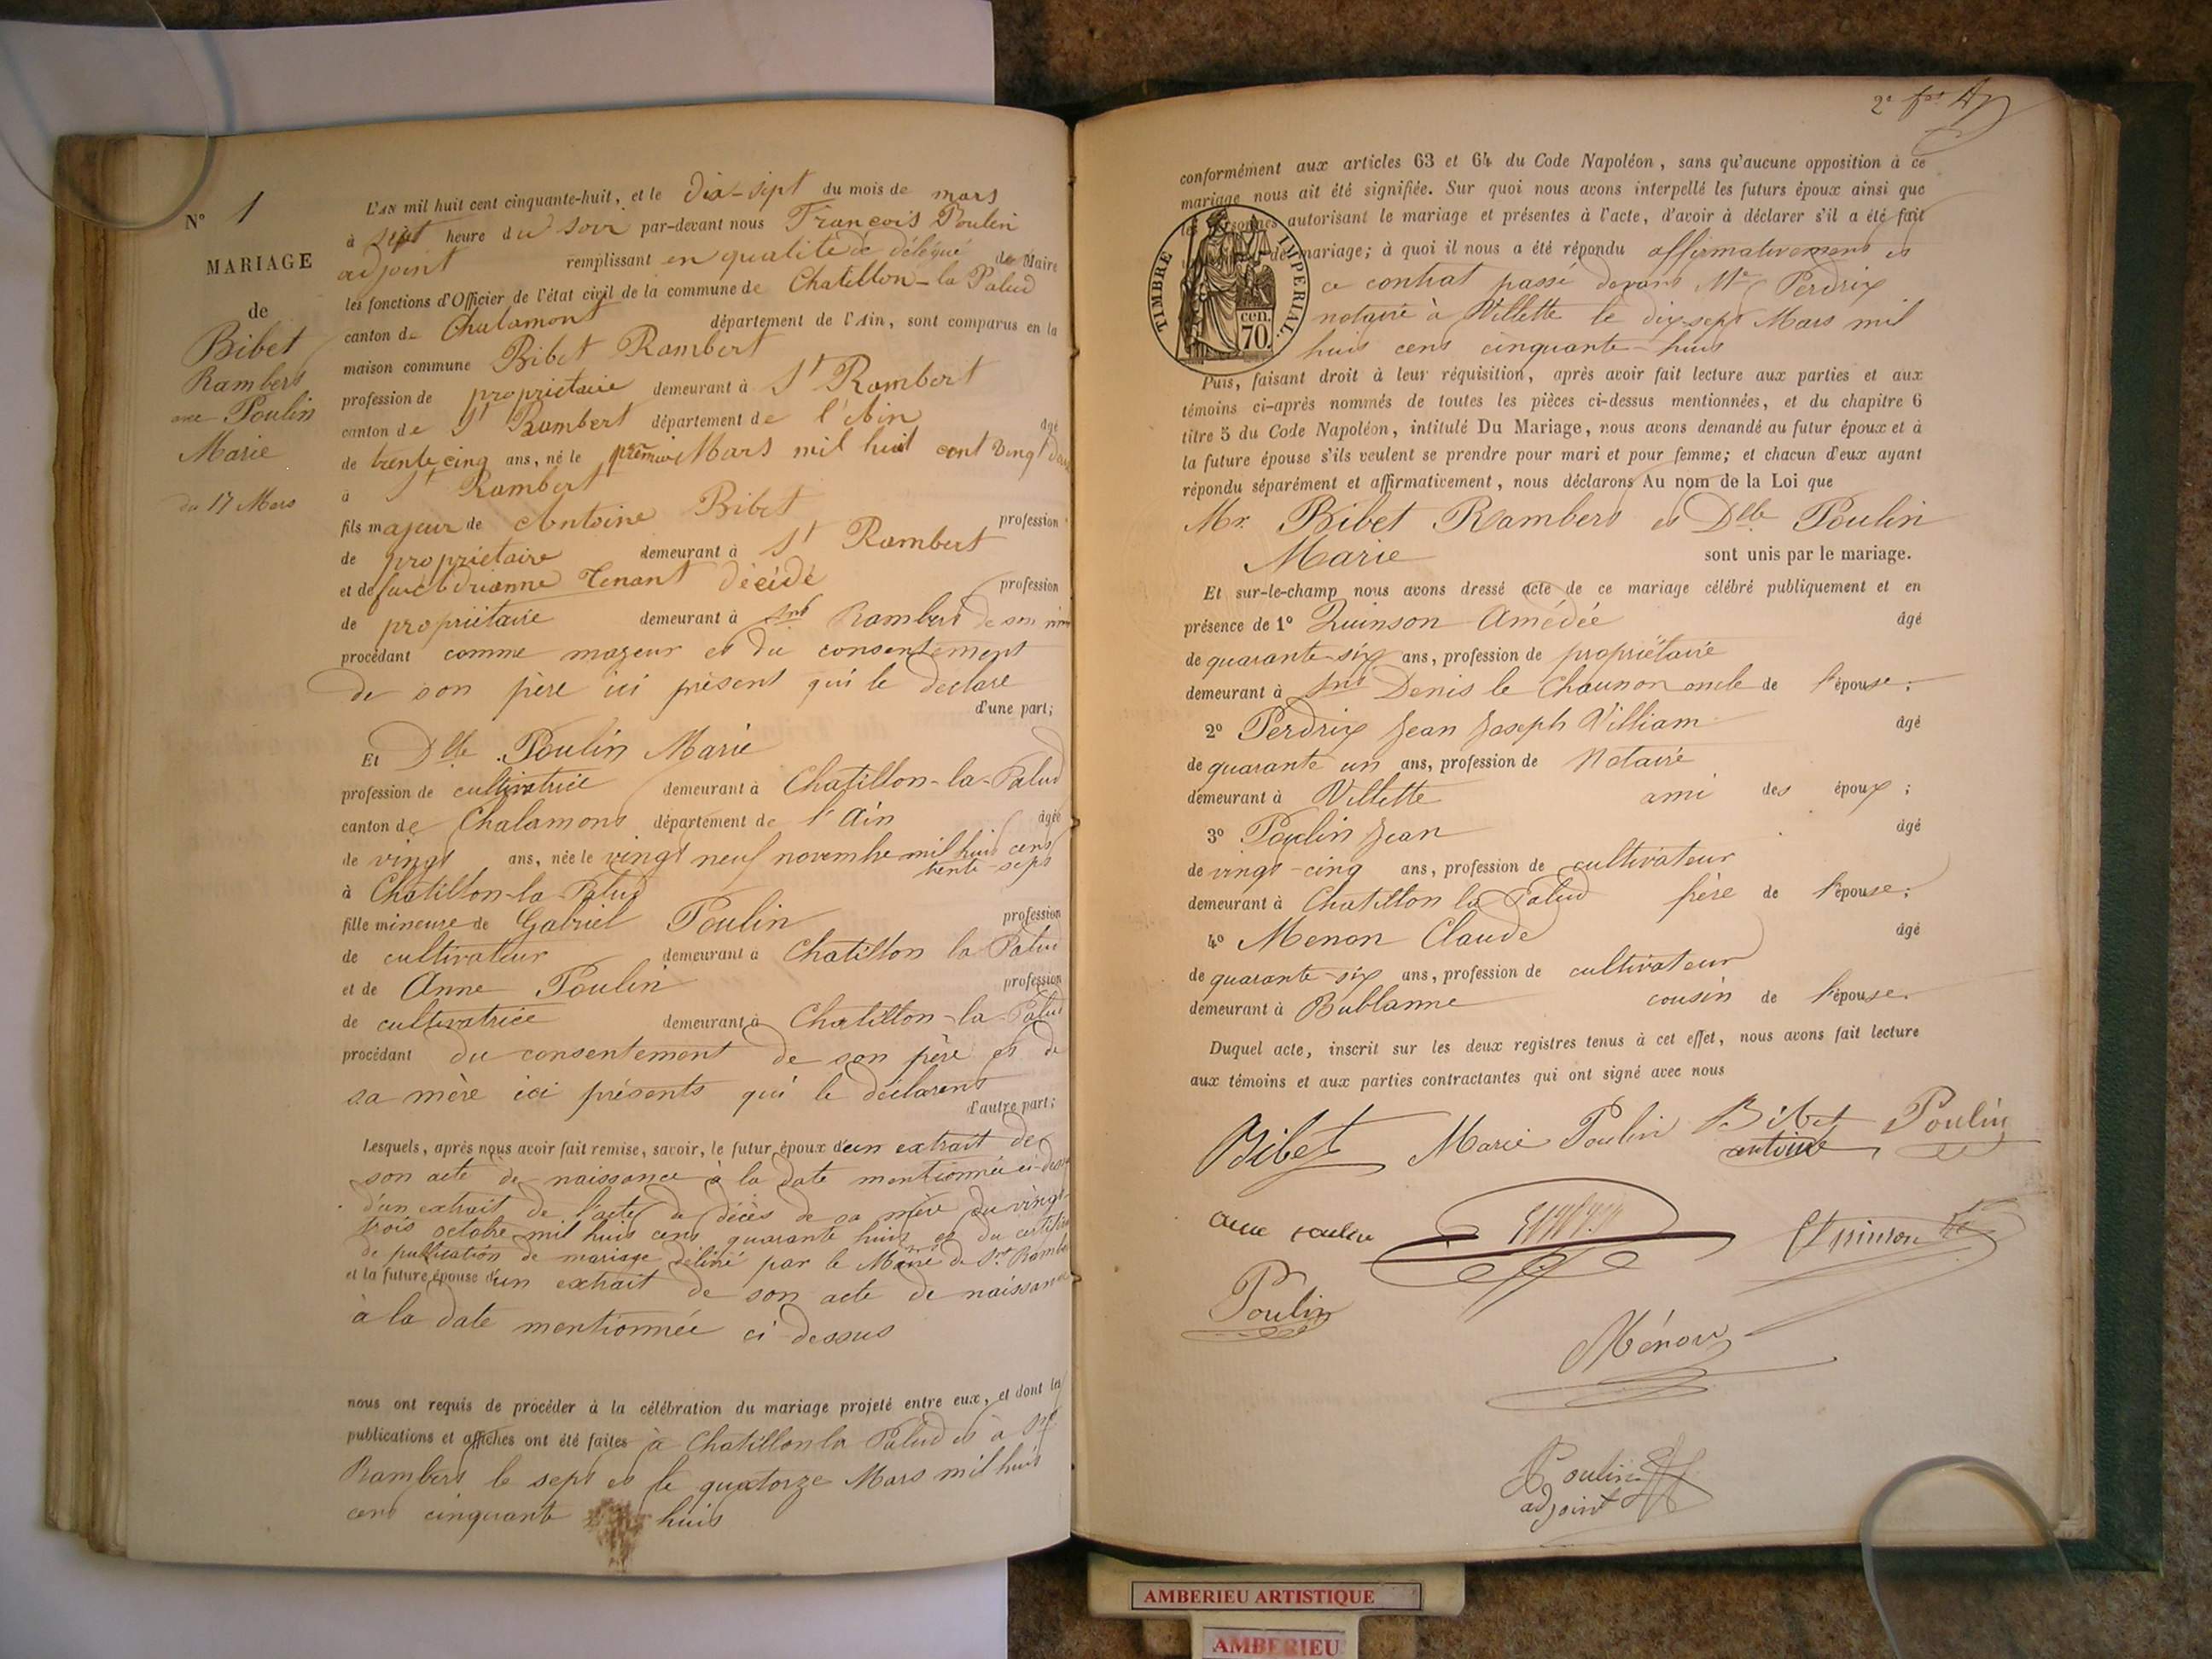 N° 1
MARIAGE
de
Bibet
Rambert
avec Poulin
Marie
du 17 Mars
L'AN mil huit cent cinquante-huit, et le dix-sept du mois de mars
à sept heure du soir par-devant nous François Poulin
adjoint remplissant en qualité de délégué du Maire
les fonctions d'Officier de l'état civil de la commune de Chatillon-la Palud
canton de Chalamont département de l'Ain, sont comparus en la
maison commune Bibet Rambert
profession de propriétaire demeurant à St Rambert
canton de St Rambert département de l'Ain âgé
de trente cinq ans, né le premier Mars mil huit cent vingt
à St Rambert
fils majeur de Antoine Bibet profession
de propriétaire demeurant à St Rambert
et de Adrianne Tenant décédé profession
de propriétaire demeurant à Snt Rambert de son
procédant comme majeur et du consentement
de son père ici présent qui le declare
d'une part;
Et Dlle Poulin Marie
profession de cultivatrice demeurant à Chatillon-la-Palud
canton de Chalamont département de l'Ain âgée
de vingt ans, née le vingt neuf novembre mil huit cent
trente-sept
à Chatillon-la Palud
fille mineure de Gabriel Poulin profession
de cultivateur demeurant à Chatillon la Palud
et de Anne Poulin profession
de cultivatrice demeurant à Chatillon-la-Palud
procédant du consentement de son père et de
sa mère ici présents qui le déclarent
d'autre part;
Lesquels, après nous avoir fait remise, savoir, le futur époux d'un extrait de
son acte de naissance à la date mentionnée ci-dessus
d'un extrait de l'acte de décès de sa mère du vingt-
trois octobre mil huit cent quarante huit et du certificat
de publication de mariage délivré par le Maire de St Rambert
et la future épouse d'un extrait de son acte de naissance
à la date mentionnée ci dessus
nous ont requis de procéder à la célébration du mariage projeté entre eux, et dont les
publications et affiches ont été faites à Chatillon la Palud et à Snt
Rambert le sept et le quatorze Mars mil huit
cent cinquante huit
2e
conformément aux articles 63 et 64 du Code Napoléon, sans qu'aucune opposition à ce
mariage nous ait été signifiée. Sur quoi nous avons interpellé les futurs époux ainsi que
les personnes autorisant le mariage et présentes à l'acte, d'avoir à déclarer s'il a été fait
de mariage; à quoi il nous a été répondu affirmativement et
ce contrat passé devant Me Perdrix
notaire à Villette le dix sept Mars mil
huit cent cinquante-huit
TIMBRE IMPERIAL.
cen.
70.
Puis, faisant droit à leur réquisition, après avoir fait lecture aux parties et aux
témoins ci-après nommés de toutes les pièces ci-dessus mentionnées, et du chapitre 6
titre 5 du Code Napoléon, intitulé Du Mariage, nous avons demandé au futur époux et à
la future épouse s'ils veulent se prendre pour mari et pour femme; et chacun d'eux ayant
répondu séparément et affirmativement, nous déclarons Au nom de la Loi que
Mr. Bibet Rambert et Dlle Poulin
Marie sont unis par le mariage.
Et sur-le-champ nous avons dressé acte de ce mariage célébré publiquement et en
présence de 1° Quinson Amédée âgé
de quarante-six ans, profession de propriétaire
demeurant à Snt Denis le Chaunon oncle de l'épouse;
2° Perdrix Jean Joseph William âgé
de quarante un ans, profession de Notaire
demeurant à Villette ami des époux;
3° Poulin Jean âgé
de vingt-cinq ans, profession de cultivateur
demeurant à Chatillon la Palud frère de l'épouse;
4° Menon Claude âgé
de quarante-six ans, profession de cultivateur
demeurant à Bublanne cousin de l'épouse.
Duquel acte, inscrit sur les deux registres tenus à cet effet, nous avons fait lecture
aux témoins et aux parties contractantes qui ont signé avec nous
Bibet Marie Poulin Bibet Poulin
antoine
Poulin
Ménon
Poulin
adjoint
AMBERIEU ARTISTIQUE
AMBERIEU